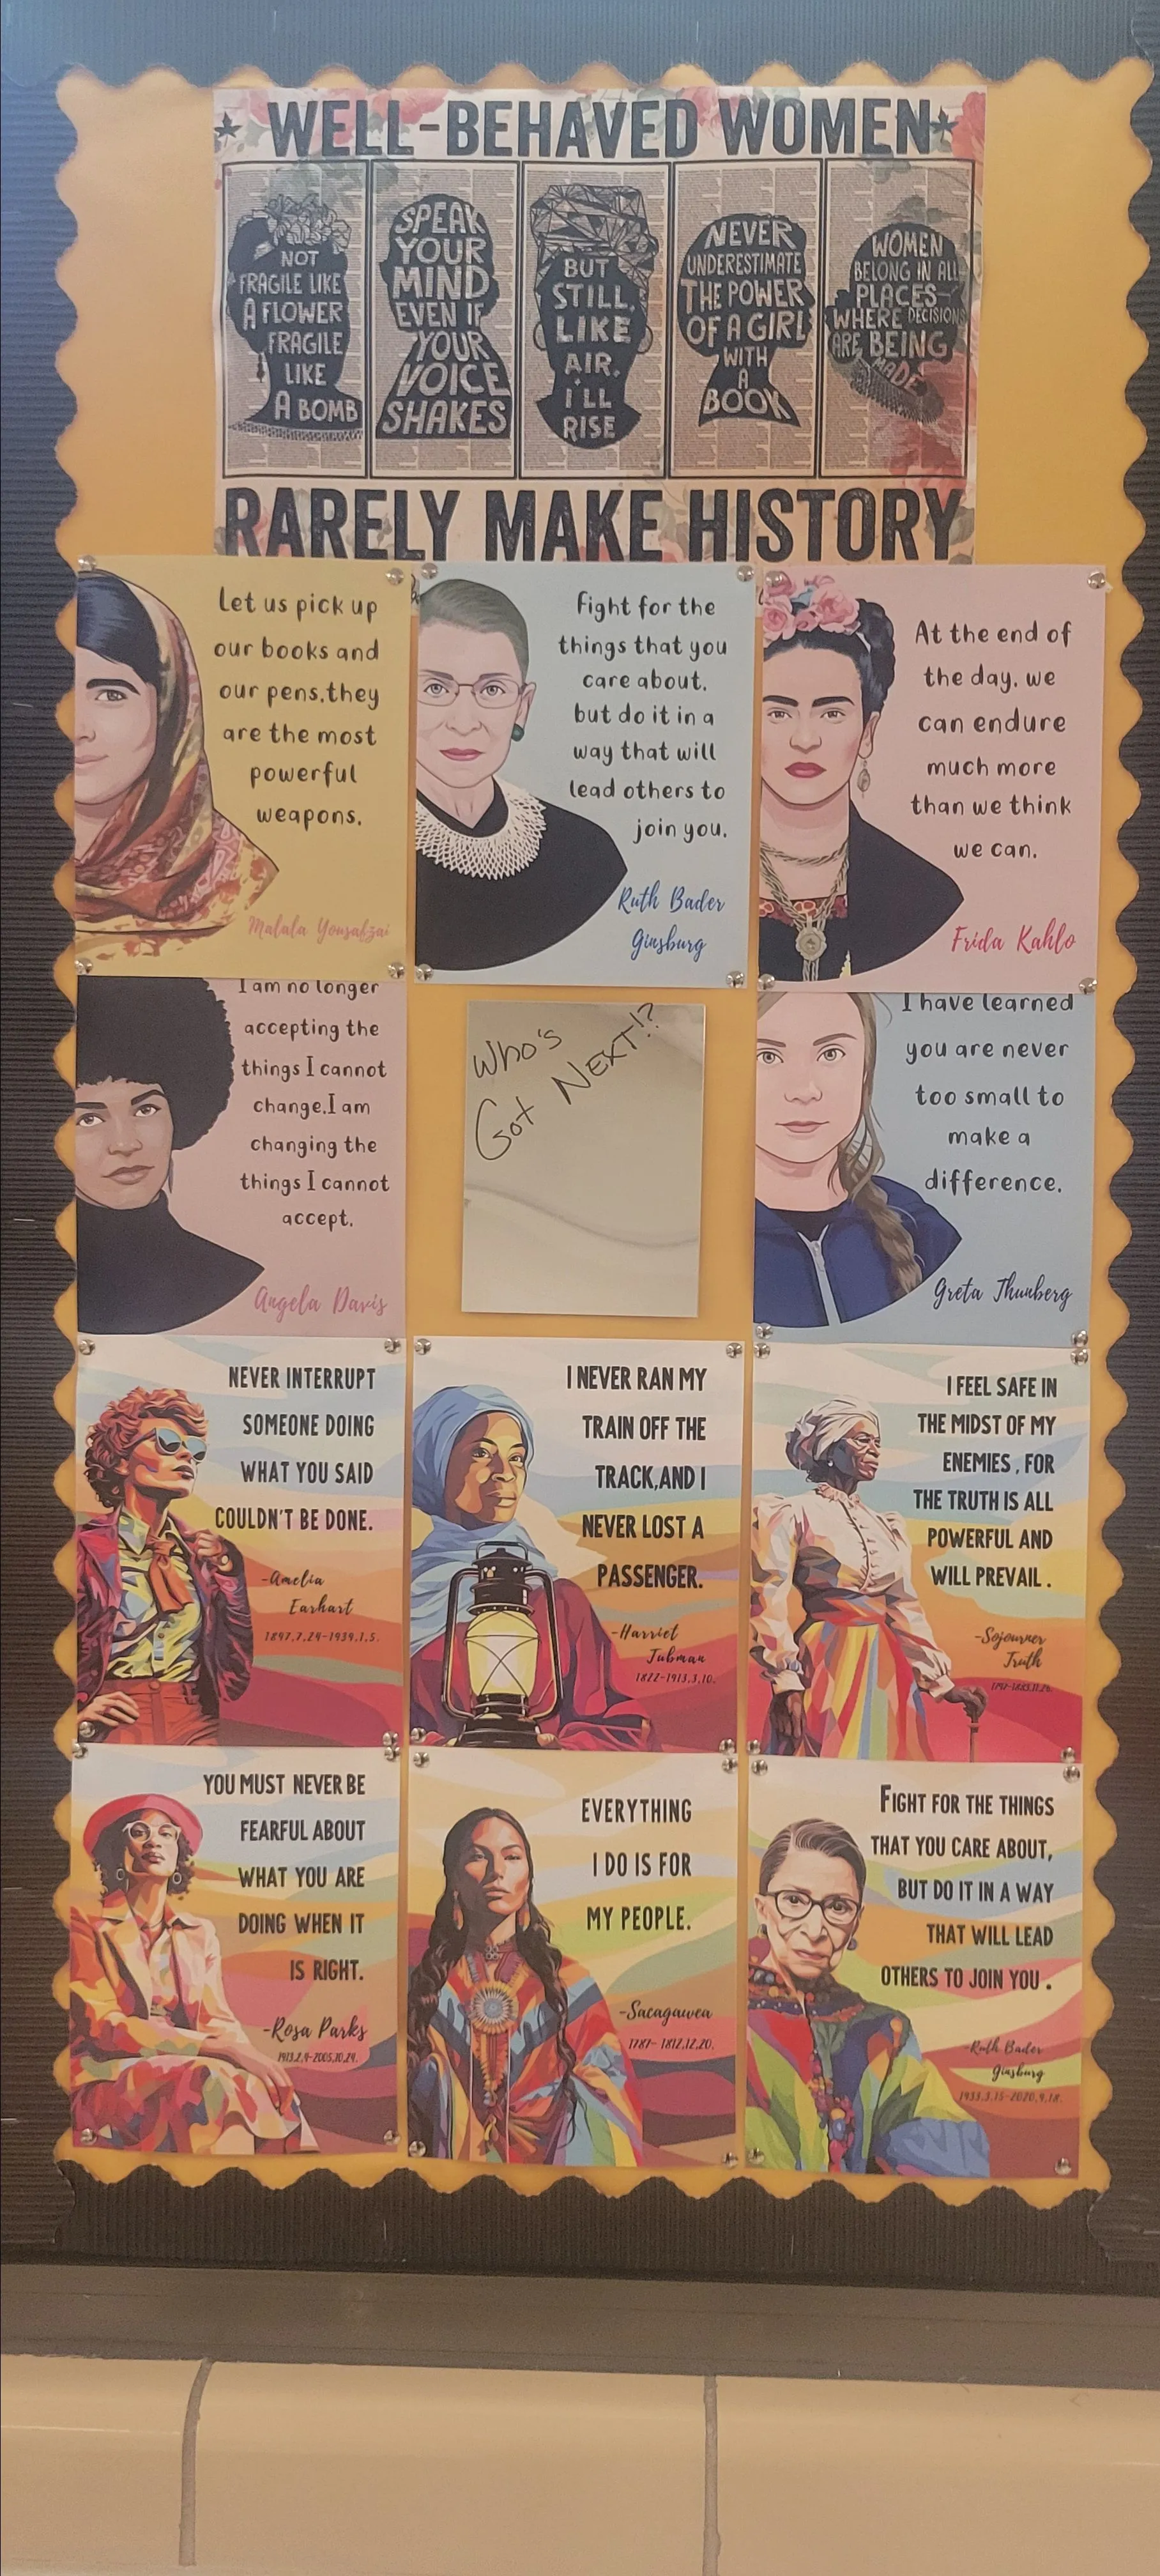 WELL-BEHAVED WOMEN
NOT
FRAGILE LIKE
A FLOWER
FRAGILE
LIKE
A BOMB
SPEAK
YOUR
MIND
EVEN IF
YOUR
VOICE
SHAKES
BUT
STILL,
LIKE
AIR,
I'LL
RISE
NEVER
UNDERESTIMATE
THE POWER
OF A GIRL
WITH
A
BOOK
WOMEN
BELONG IN ALL
PLACES
WHERE DECISIONS
ARE BEING
MADE
RARELY MAKE HISTORY
Let us pick up
our books and
our pens,they
are the most
powerful
weapons.
Malala Yousafzai
Fight for the
things that you
care about,
but do it in a
way that will
lead others to
join you.
Ruth Bader
Ginsburg
At the end of
the day, we
can endure
much more
than we think
we can.
Frida Kahlo
I am no longer
accepting the
things I cannot
change.I am
changing the
things I cannot
accept.
Angela Davis
Who's
Got NEXT!?
I have learned
you are never
too small to
make a
difference.
Greta Thunberg
NEVER INTERRUPT
SOMEONE DOING
WHAT YOU SAID
COULDN'T BE DONE.
-Amelia
Earhart
1897.7.24-1939.1.5.
I NEVER RAN MY
TRAIN OFF THE
TRACK,AND I
NEVER LOST A
PASSENGER.
-Harriet
Tubman
1822-1913.3.10.
I FEEL SAFE IN
THE MIDST OF MY
ENEMIES , FOR
THE TRUTH IS ALL
POWERFUL AND
WILL PREVAIL .
-Sojourner
Truth
YOU MUST NEVER BE
FEARFUL ABOUT
WHAT YOU ARE
DOING WHEN IT
IS RIGHT.
-Rosa Parks
1913.2.4-2005.10.24.
EVERYTHING
I DO IS FOR
MY PEOPLE.
-Sacagawea
1787- 1812.12.20.
FIGHT FOR THE THINGS
THAT YOU CARE ABOUT,
BUT DO IT IN A WAY
THAT WILL LEAD
OTHERS TO JOIN YOU .
-Ruth Bader
Ginsburg
1933.3.15-2020.9.18.